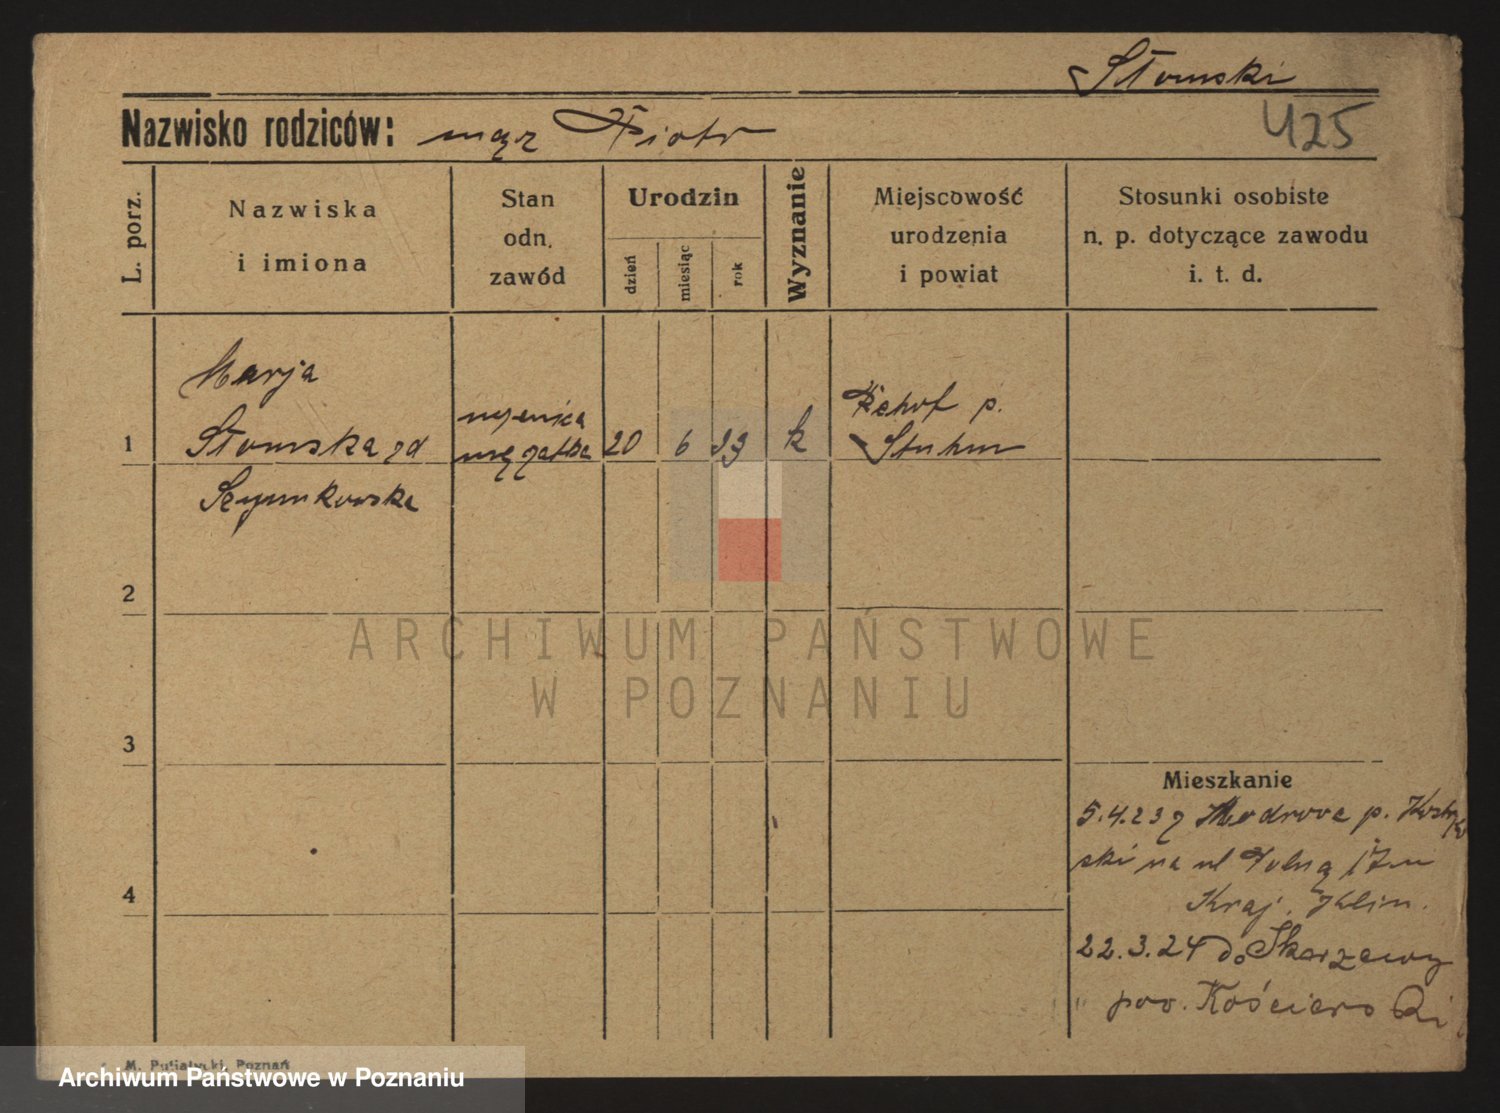 Słomski
Nazwisko rodziców: mąż Piotr
425
L. porz.
Nazwiska
i imiona
Stan
odn.
zawód
Urodzin
dzień
miesiąc
rok
Wyznanie
Miejscowość
urodzenia
i powiat
Stosunki osobiste
n. p. dotyczące zawodu
i. t. d.
Marja
1 Słomska zd
Szymkowska
mężatka
20 6 k
p.
Stuhm
2
ARCHIWUM PAŃSTWOWE
W POZNANIU
3
4
Mieszkanie
5.4.23 z p.
ski na ul 17 u
Kraj. Klim.
22.3.24 do Skarzewy
pow. Kościerski
M. Putiatycki, Poznań
Archiwum Państwowe w Poznaniu